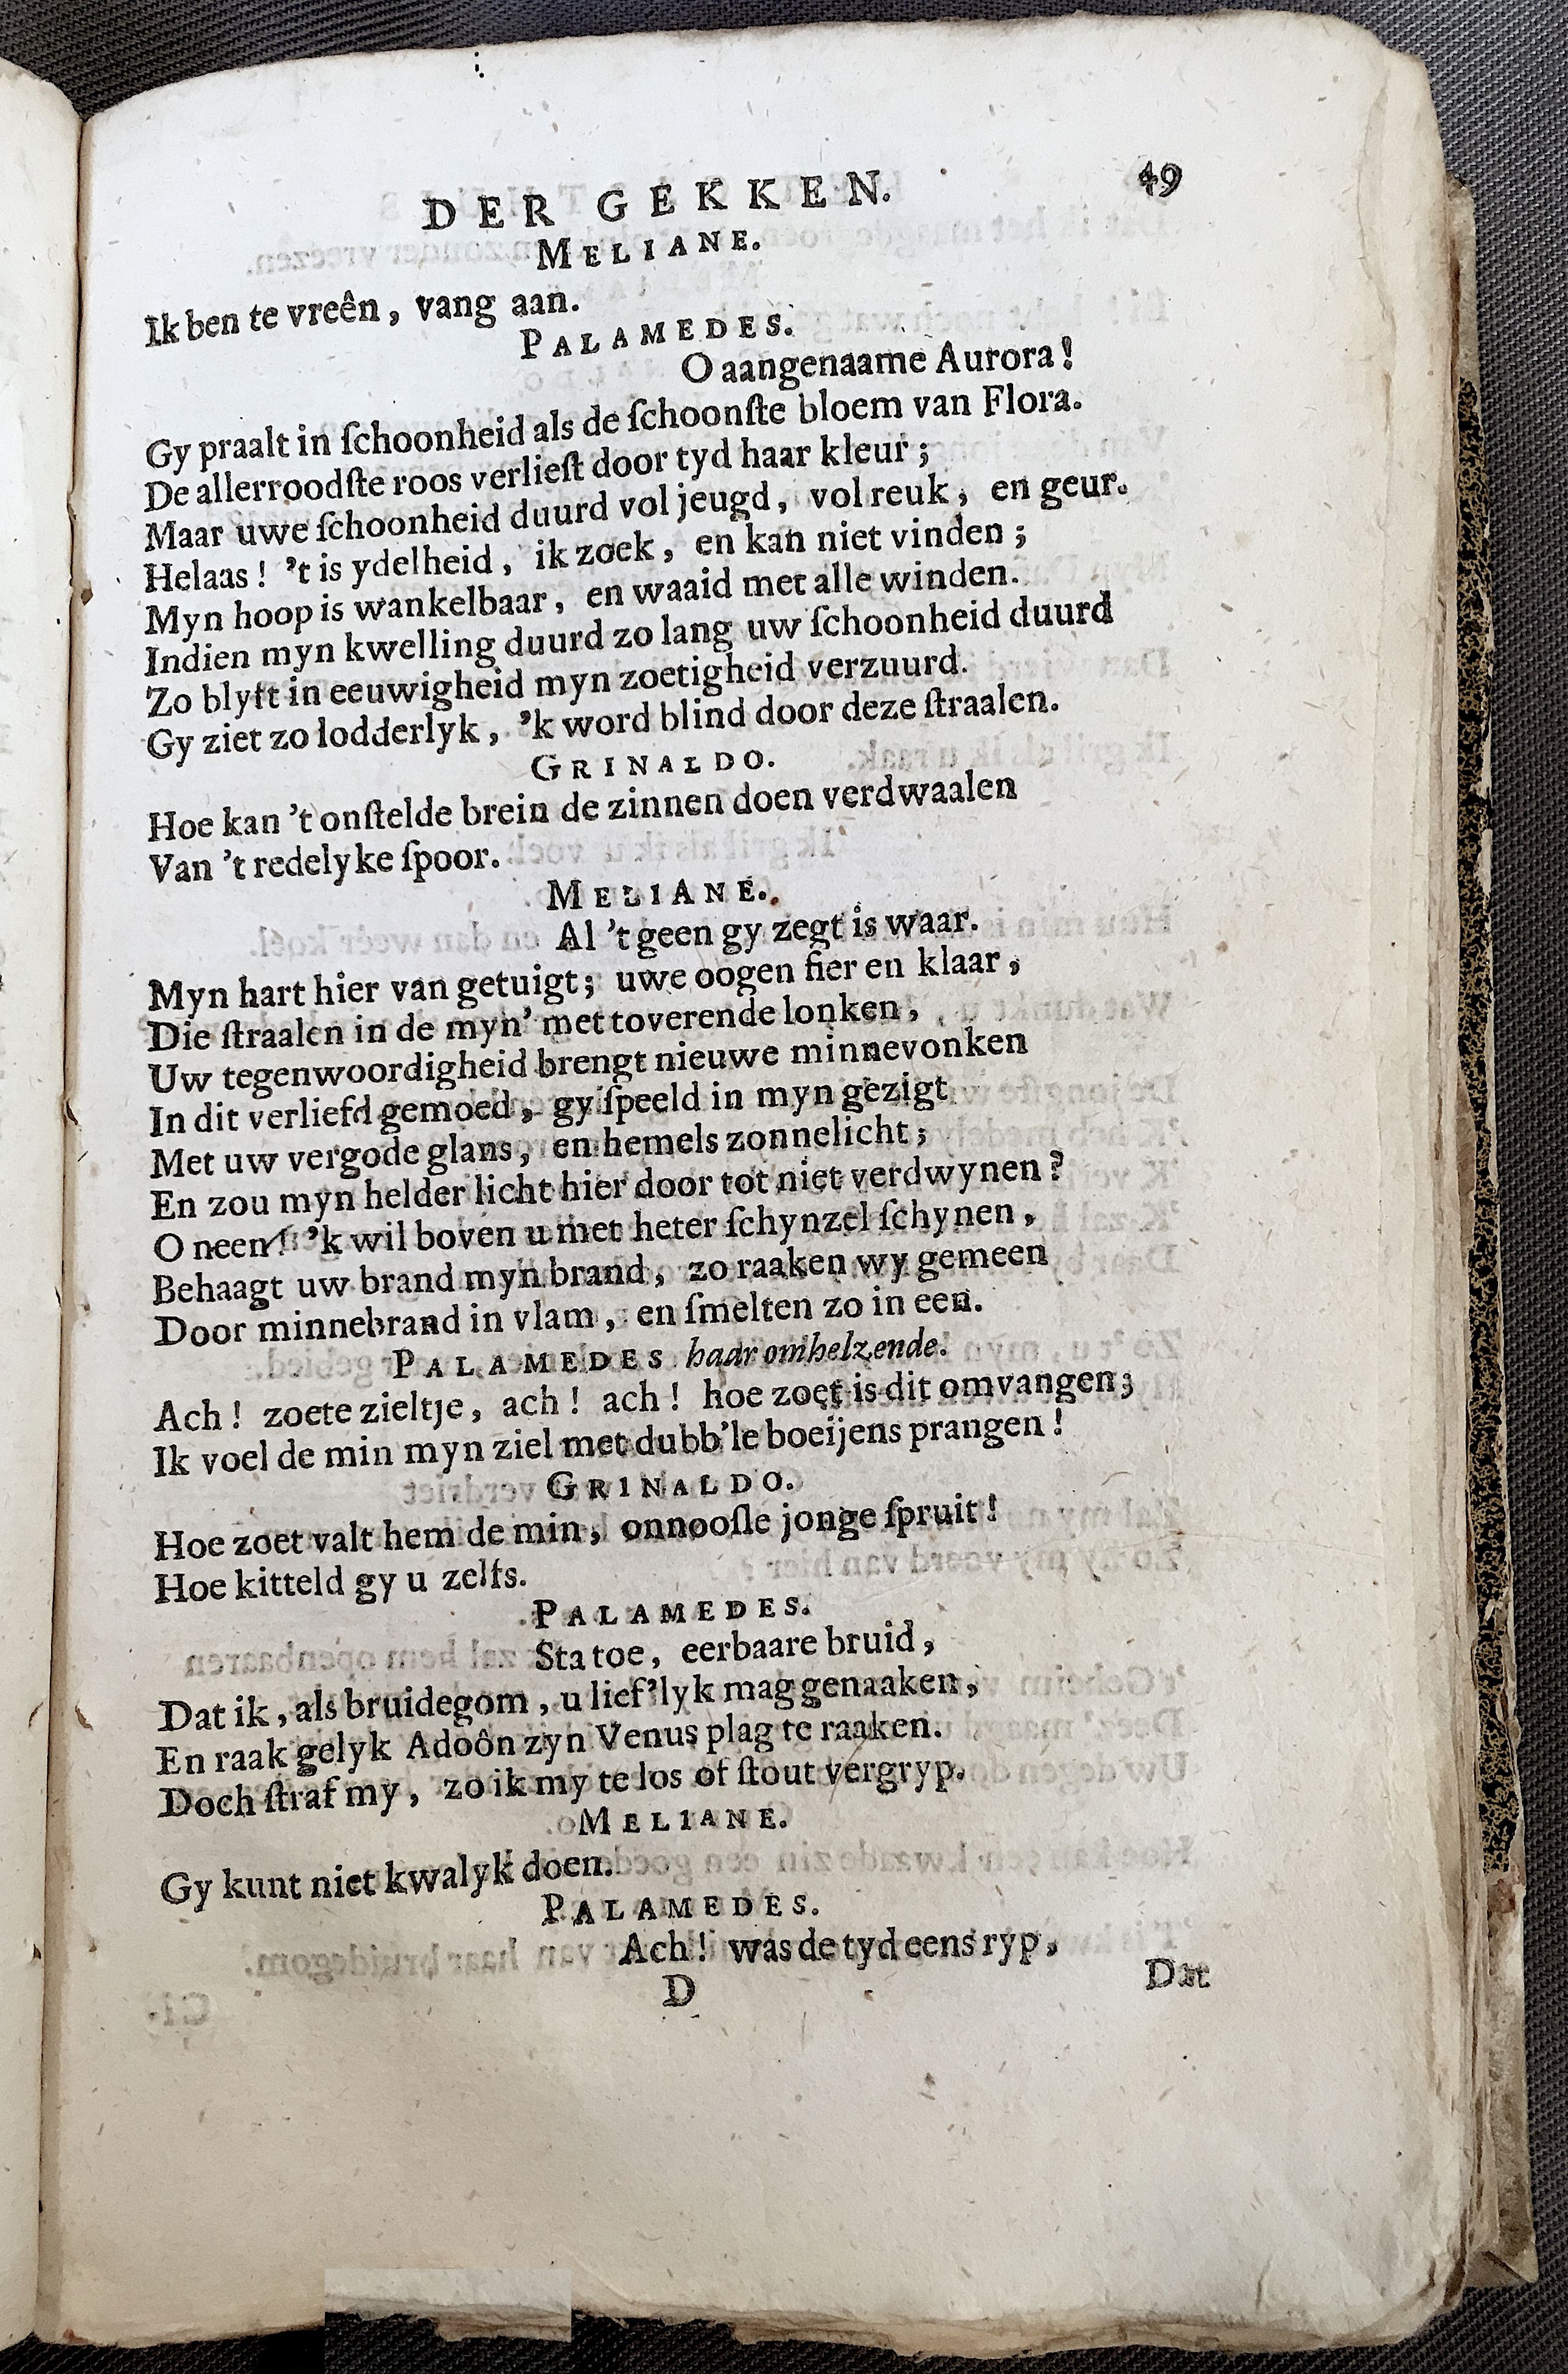 DER GEKKEN. 49
MELIANE.
Ik ben te vreên, vang aan.
PALAMEDES.
O aangenaame Aurora!
Gy praalt in ſchoonheid als de ſchoonſte bloem van Flora.
De allerroodſte roos verlieſt door tyd haar kleur;
Maar uwe ſchoonheid duurd vol jeugd, vol reuk, en geur.
Helaas! 't is ydelheid, ik zoek, en kan niet vinden;
Myn hoop is wankelbaar, en waaid met alle winden.
Indien myn kwelling duurd zo lang uw ſchoonheid duurd
Zo blyft in eeuwigheid myn zoetigheid verzuurd.
Gy ziet zo lodderlyk, 'k word blind door deze ſtraalen.
GRINALDO.
Hoe kan 't onſtelde brein de zinnen doen verdwaalen
Van 't redelyke ſpoor.
MELIANE.
Al 't geen gy zegt is waar.
Myn hart hier van getuigt; uwe oogen fier en klaar,
Die ſtraalen in de myn' met toverende lonken,
Uw tegenwoordigheid brengt nieuwe minnevonken
In dit verliefd gemoed, gy ſpeeld in myn gezigt
Met uw vergode glans, en hemels zonnelicht;
En zou myn helder licht hier door tot niet verdwynen?
O neen! 'k wil boven u met heter ſchynzel ſchynen,
Behaagt uw brand myn brand, zo raaken wy gemeen
Door minnebrand in vlam, en ſmelten zo in een.
PALAMEDES haar omhelzende.
Ach! zoete zieltje, ach! ach! hoe zoet is dit omvangen;
Ik voel de min myn ziel met dubb'le boeijens prangen!
GRINALDO.
Hoe zoet valt hem de min, onnooſle jonge ſpruit!
Hoe kitteld gy u zelfs.
PALAMEDES.
Sta toe, eerbaare bruid,
Dat ik, als bruidegom, u lief'lyk mag genaaken,
En raak gelyk Adoôn zyn Venus plag te raaken.
Doch ſtraf my, zo ik my te los of ſtout vergryp.
MELIANE.
Gy kunt niet kwalyk doen.
PALAMEDES.
Ach! was de tyd eens ryp,
D Dat